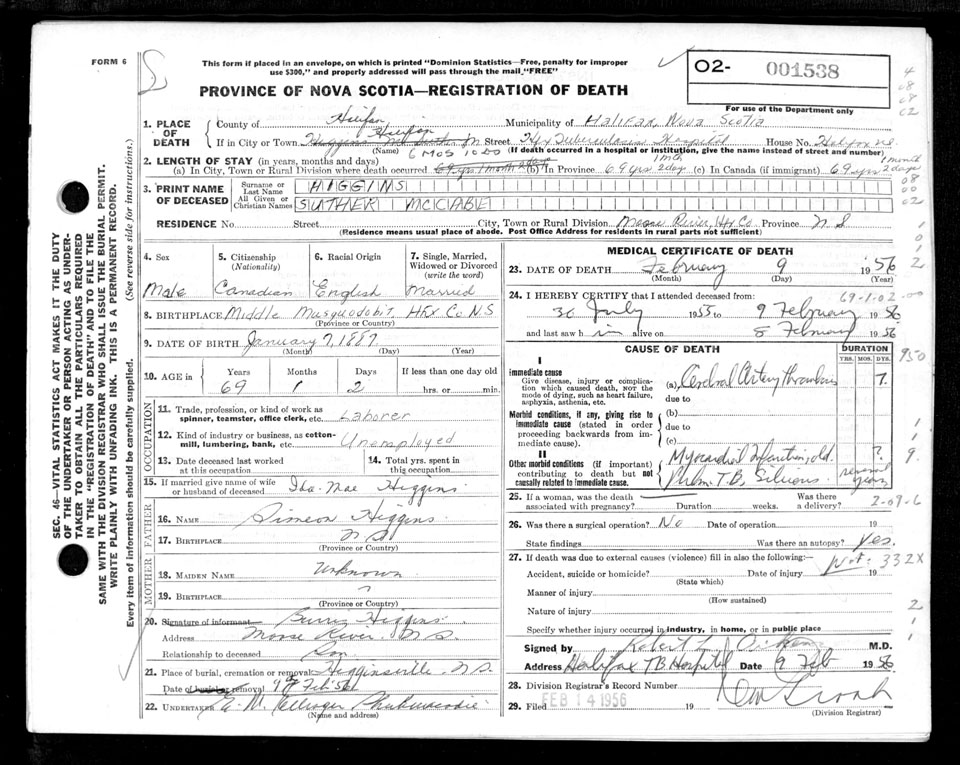 FORM 6
This form if placed in an envelope, on which is printed "Dominion Statistics—Free, penalty for improper
use $300," and properly addressed will pass through the mail "FREE"
O2- 001538
For use of the Department only
PROVINCE OF NOVA SCOTIA—REGISTRATION OF DEATH
SEC. 46—VITAL STATISTICS ACT MAKES IT THE DUTY
OF THE UNDERTAKER OR PERSON ACTING AS UNDER-
TAKER TO OBTAIN ALL THE PARTICULARS REQUIRED
IN THE "REGISTRATION OF DEATH" AND TO FILE THE
SAME WITH THE DIVISION REGISTRAR WHO SHALL ISSUE THE BURIAL PERMIT.
WRITE PLAINLY WITH UNFADING INK. THIS IS A PERMANENT RECORD.
Every item of information should be carefully supplied. (See reverse side for instructions.)
1. PLACE OF DEATH
County of Municipality of Halifax, Nova Scotia
If in City or Town Halifax Street Hfx Tuberculosis Hospital House No.
(Name) (If death occurred in a hospital or institution, give the name instead of street and number)
6 MOS 10 DS
2. LENGTH OF STAY (in years, months and days)
(a) In City, Town or Rural Division where death occurred (b) In Province 69 yrs 1 mth 2 days (c) In Canada (if immigrant) 69 yrs 1 month 2 days
3. PRINT NAME OF DECEASED
Surname or Last Name HIGGINS
All Given or Christian Names SUTHER MCCABE
RESIDENCE No. Street City, Town or Rural Division Moose River, Hfx Co Province N S
(Residence means usual place of abode. Post Office Address for residents in rural parts not sufficient)
4. Sex Male
5. Citizenship (Nationality) Canadian
6. Racial Origin English
7. Single, Married, Widowed or Divorced (write the word) Married
8. BIRTHPLACE Middle Musquodobit, Hfx Co N.S
(Province or Country)
9. DATE OF BIRTH January 7, 1887.
(Month) (Day) (Year)
10. AGE in Years 69 Months 1 Days 2 If less than one day old hrs. or min.
OCCUPATION
11. Trade, profession, or kind of work as spinner, teamster, office clerk, etc. Laborer
12. Kind of industry or business, as cotton-mill, lumbering, bank, etc. Unemployed
13. Date deceased last worked at this occupation
14. Total yrs. spent in this occupation
15. If married give name of wife or husband of deceased Ida Mae Higgins
FATHER
16. NAME Simeon Higgins
17. BIRTHPLACE N S
(Province or Country)
MOTHER
18. MAIDEN NAME Unknown
19. BIRTHPLACE
(Province or Country)
20. Signature of informant Higgins
Address Moose River N S
Relationship to deceased Son
21. Place of burial, cremation or removal Higginsville, N S
Date of burial or removal Feb 56
22. UNDERTAKER Shubenacadie
(Name and address)
MEDICAL CERTIFICATE OF DEATH
23. DATE OF DEATH February 9 1956
(Month) (Day) (Year)
24. I HEREBY CERTIFY that I attended deceased from:
30 July 1955 to 9 February 1956
and last saw him alive on 8 February 1956
69-1-02-00
CAUSE OF DEATH
DURATION
YRS. MOS. DYS.
I
Immediate cause
Give disease, injury or complication which caused death, NOT the mode of dying, such as heart failure, asphyxia, asthenia, etc.
(a) Cerebral Artery thrombosis 7.
due to
Morbid conditions, if any, giving rise to immediate cause (stated in order proceeding backwards from immediate cause).
(b)
due to
(c)
II
Other morbid conditions (if important) contributing to death but not causally related to immediate cause.
Myocardial Infarction, old. ?
Pulm. T.B., Silicosis several years
25. If a woman, was the death associated with pregnancy? Duration weeks. Was there a delivery?
2-09-6
26. Was there a surgical operation? No Date of operation 19
State findings Was there an autopsy? Yes.
27. If death was due to external causes (violence) fill in also the following:—
Not: 332X
Accident, suicide or homicide? Date of injury 19
(State which)
Manner of injury
(How sustained)
Nature of injury
Specify whether injury occurred in industry, in home, or in public place
Signed by Robert L. M.D.
Address Halifax TB Hospital Date 9 Feb 1956
28. Division Registrar's Record Number
29. Filed FEB 14 1956 19
(Division Registrar)